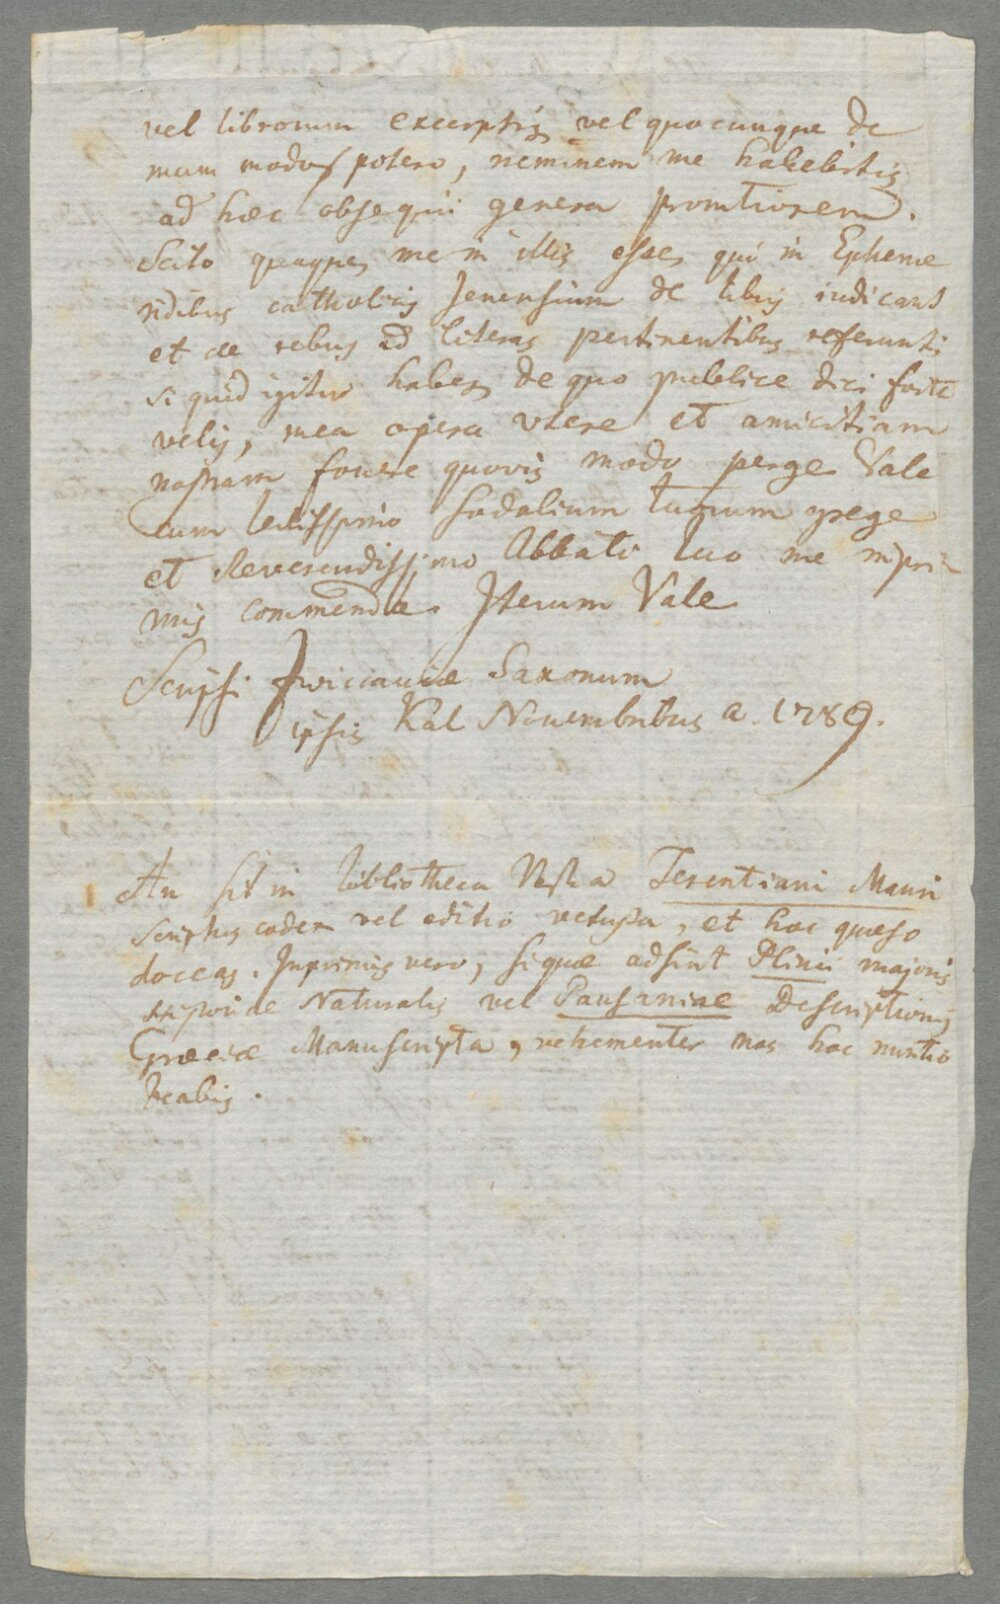 vel librorum excerptis vel quocunque de
mum modo potero, neminem me habebitis
ad haec obsequii genera promtiorem.
Scito quoque me in illis esse, qui in Epheme
ridibus Jenensium de libris iudicant
et de rebus ad literas pertinentibus referunt:
si quid igitur habes, de quo publice dici forte
velis, mea opera vtere et amicitiam
nostram fouere quovis modo perge Vale
cum lectissimo Sodalium tuorum grege
et Reverendissimo Abbati tuo me inpri
mis commenda. Iterum Vale
Scripsi Zwiccauiae Saxonum
ipsis Kal Novembribus a. 1789.
An sit in bibliotheca Vestra Terentiani Mauri
scriptus codex vel editio vetusta, et hoc quaeso
doceas. Inprimis vero, si quae adsint Plinii majoris
Historiae Naturalis vel Pausaniae Descriptionis
Graeciae Manuscripta, vehementer nos hoc nuntio
beabis.